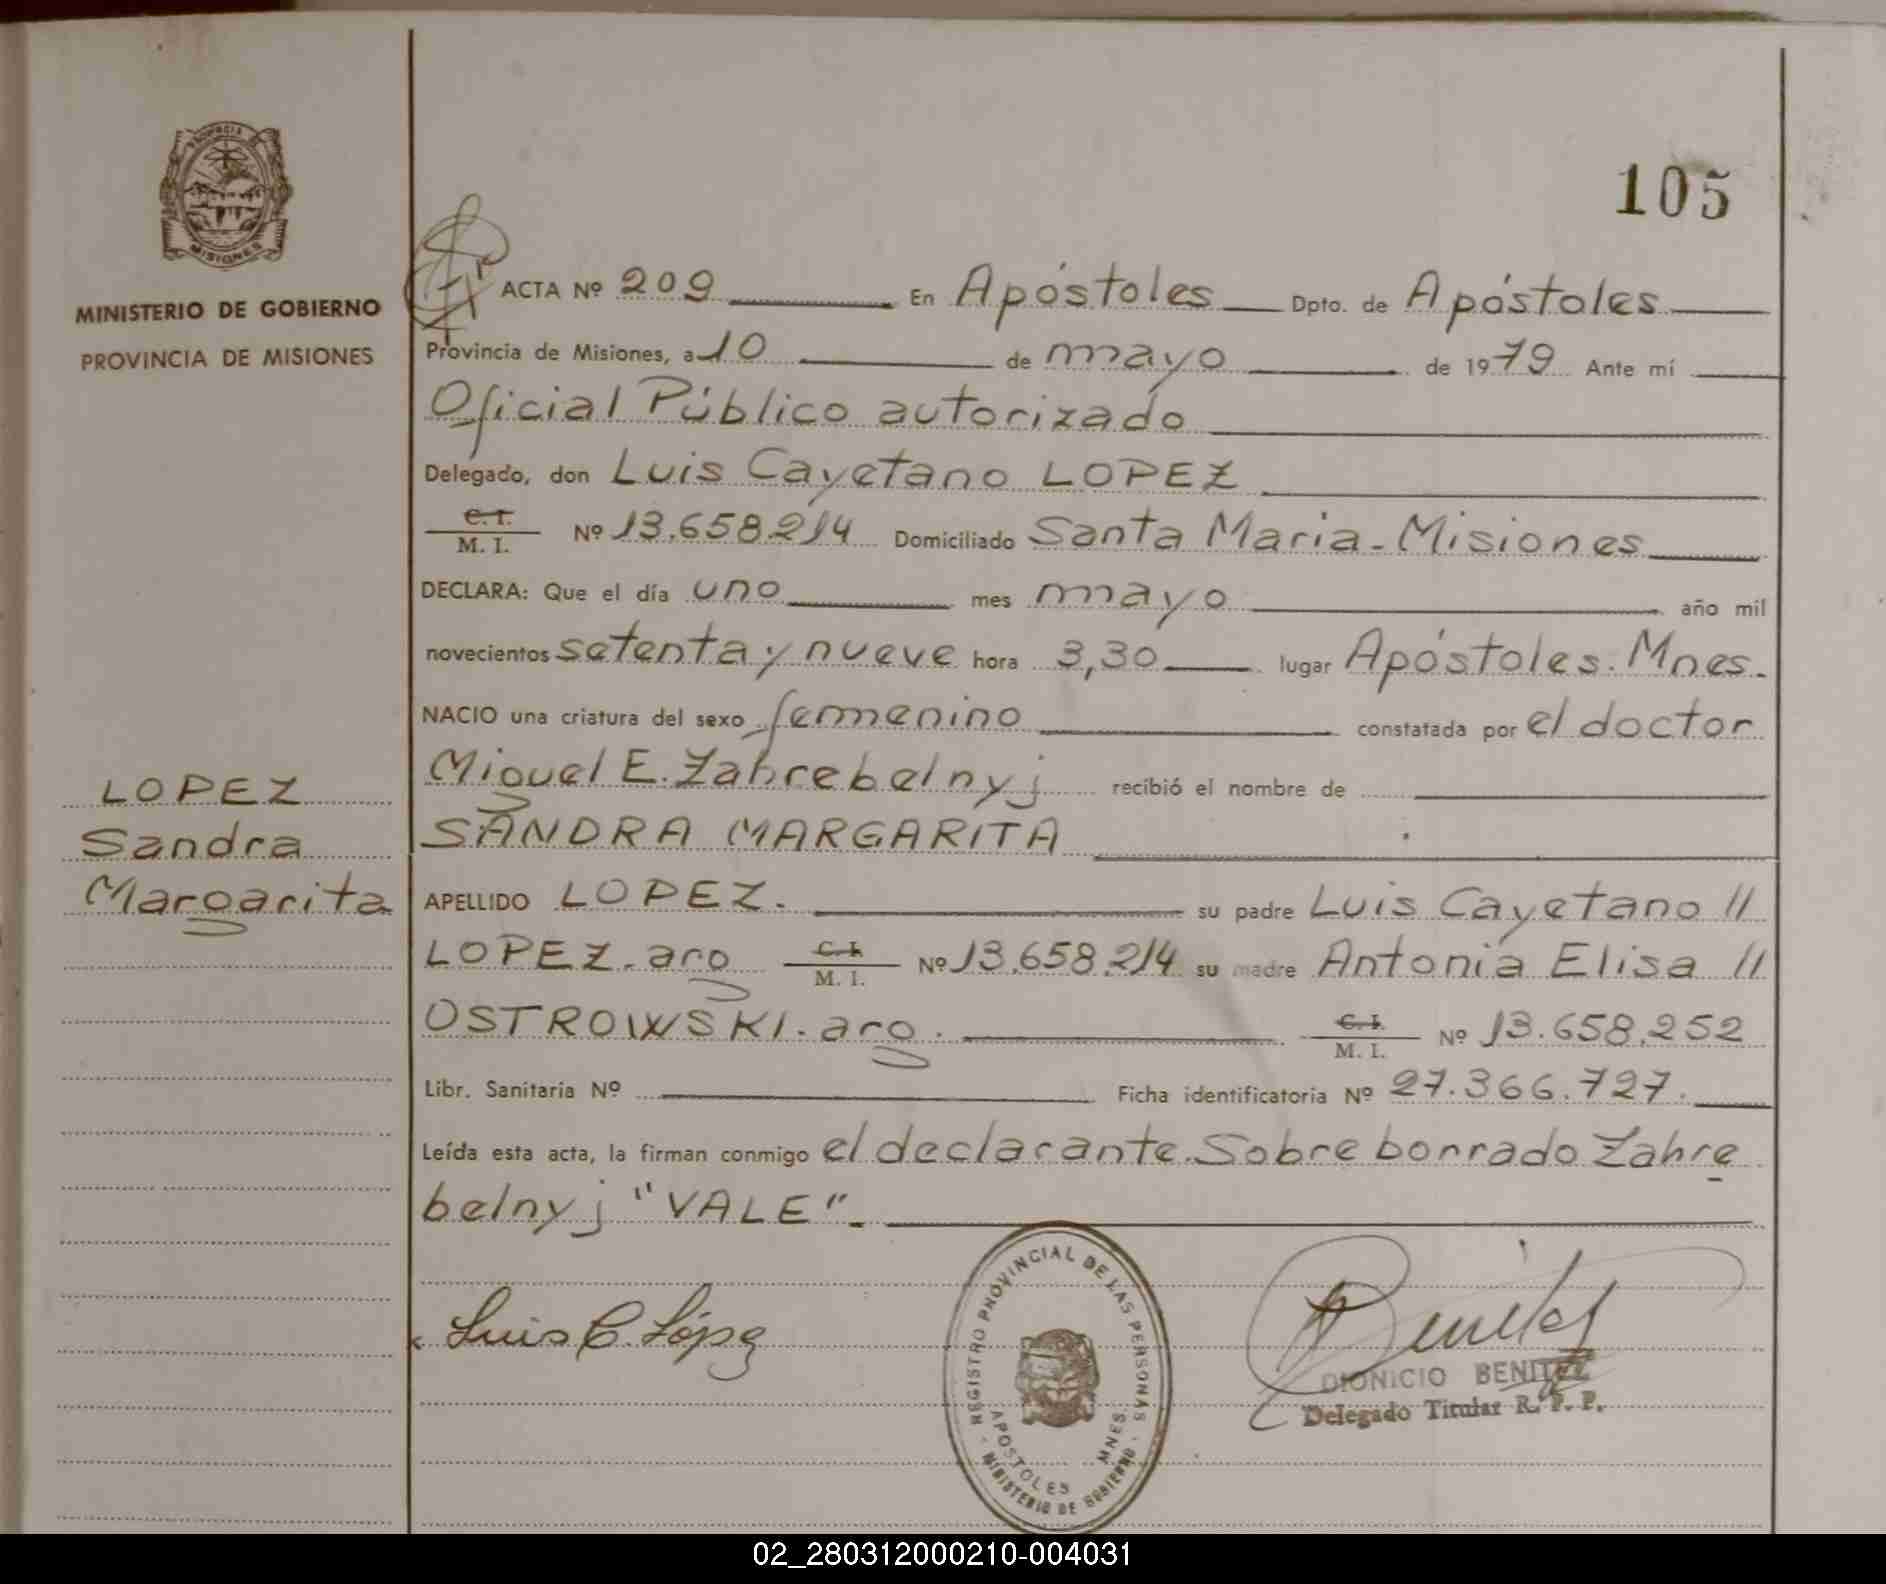 105
PROVINCIA DE
MISIONES
MINISTERIO DE GOBIERNO
PROVINCIA DE MISIONES
ACTA Nº 209 En Apóstoles Dpto. de Apóstoles
Provincia de Misiones, a 10 de mayo de 1979 Ante mí
Oficial Público autorizado
Delegado, don Luis Cayetano LOPEZ
C. I.
M. I. Nº 13.658.214 Domiciliado Santa Maria - Misiones
DECLARA: Que el día uno mes mayo año mil
novecientos setenta y nueve hora 3,30 lugar Apóstoles. Mnes.
NACIO una criatura del sexo femenino constatada por el doctor
Miguel E. Zahrebelnyj recibió el nombre de
SANDRA MARGARITA
LOPEZ
Sandra
Margarita
APELLIDO LOPEZ. su padre Luis Cayetano //
LOPEZ. arg C. I.
M. I. Nº 13.658.214 su madre Antonia Elisa //
OSTROWSKI. arg. C. I.
M. I. Nº 13.658.252
Libr. Sanitaria Nº Ficha identificatoria Nº 27.366.727.
Leída esta acta, la firman conmigo el declarante. Sobre borrado Zahre
belnyj "VALE".
Luis C. López
REGISTRO PROVINCIAL DE LAS PERSONAS
APOSTOLES MNES
MINISTERIO DE GOBIERNO
Benitez
DIONICIO BENITEZ
Delegado Titular R. P. P.
02_280312000210-004031